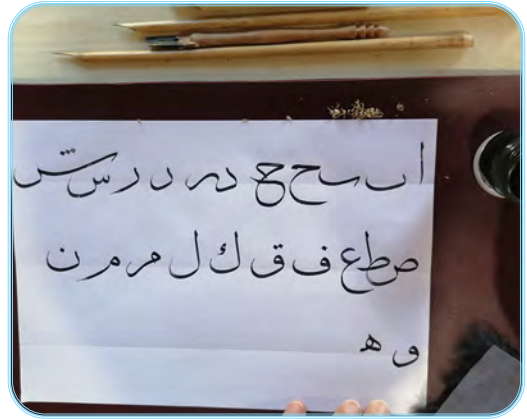 ا ں ح ح د ر ر س ش
ص ط ع ف ق ك ل م م ن
و ه